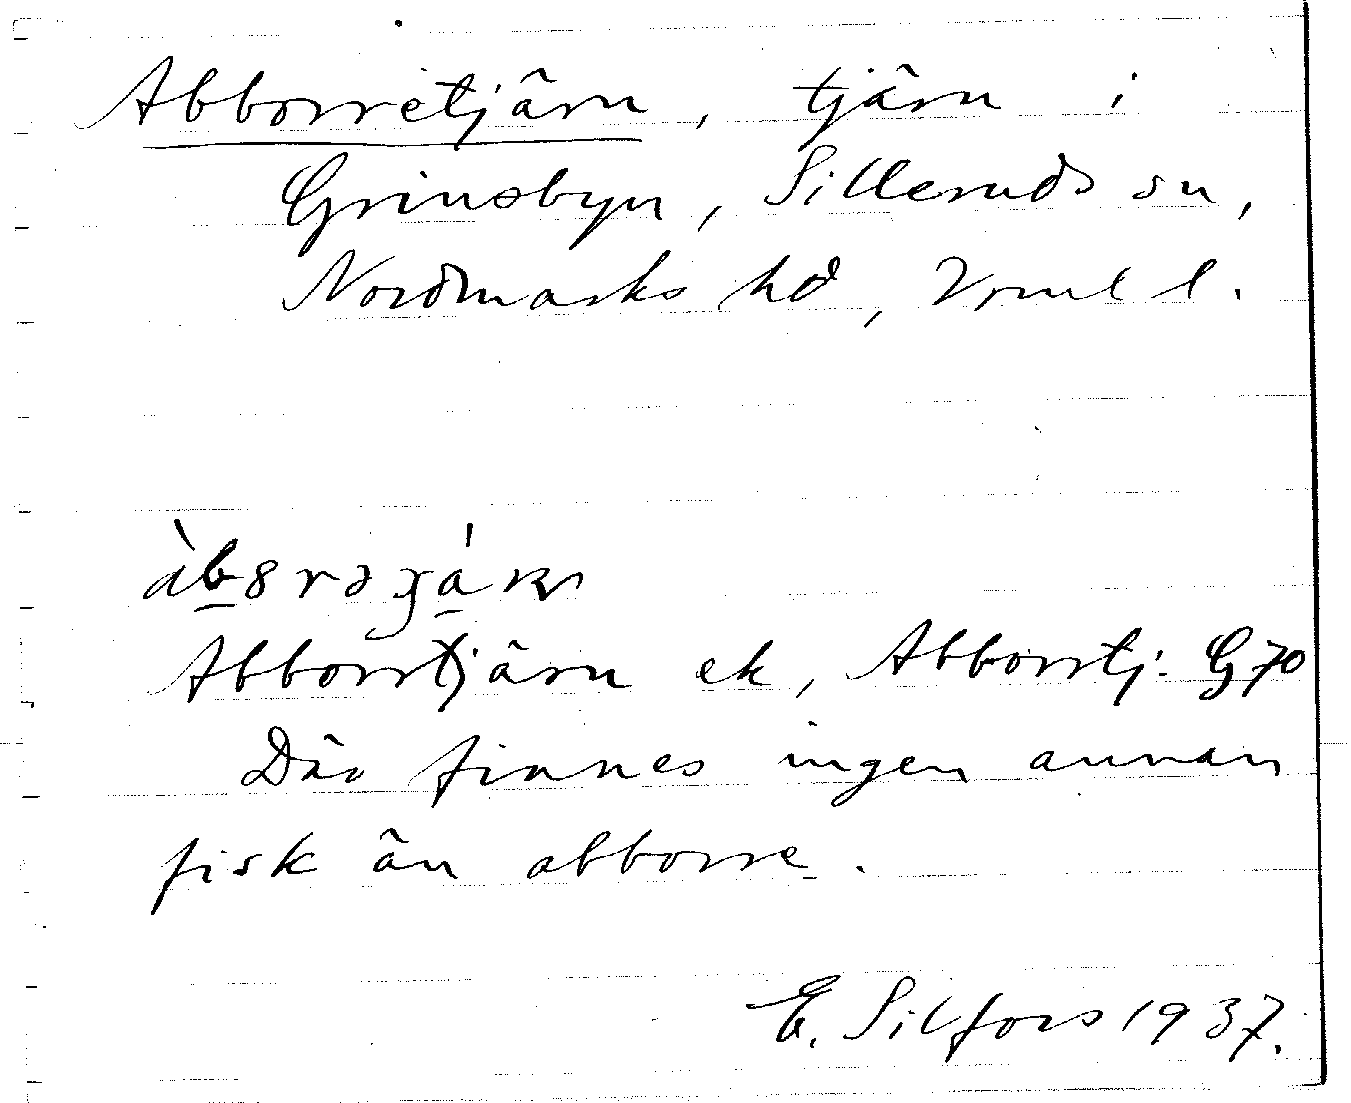 Abborretjärn, tjärn i
Grinsbyn, Silleruds sn,
Nordmarks hd, Vrml l.
àb8rəɟáɳ
Abborrtjärn ek, Abborrtj: G70
Där finnes ingen annan
fisk än abborre.
E. Silfors 1937.